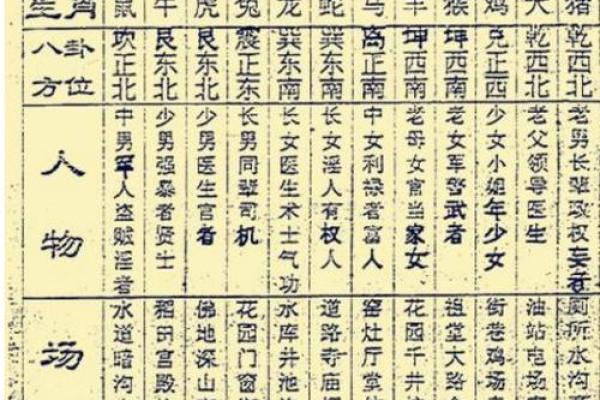 生肖 鼠 牛 虎 兔 龙 蛇 马 羊 猴 鸡 犬 猪
八卦方位
坎正北
艮东北
艮东北
震正东
巽东南
巽东南
离正南
坤西南
坤西南
兑正西
乾西北
乾西北
人物
中男军人盗贼淫者
少男强暴者贤士
少男医生官者
长男同辈司机
长女医生术士气功
长女淫人有权人
中女利禄者富人
老母女官当家女
老女军警武者
少女小姐年少女
老父领导医生
老男长辈政权者
场
水道暗沟
稻田宫殿
佛地深山
花园门窗
水库井池
道路寺庙
窑灶厅堂
花园千井
祖堂大路
街巷鸡场
油站电场
厕所水沟